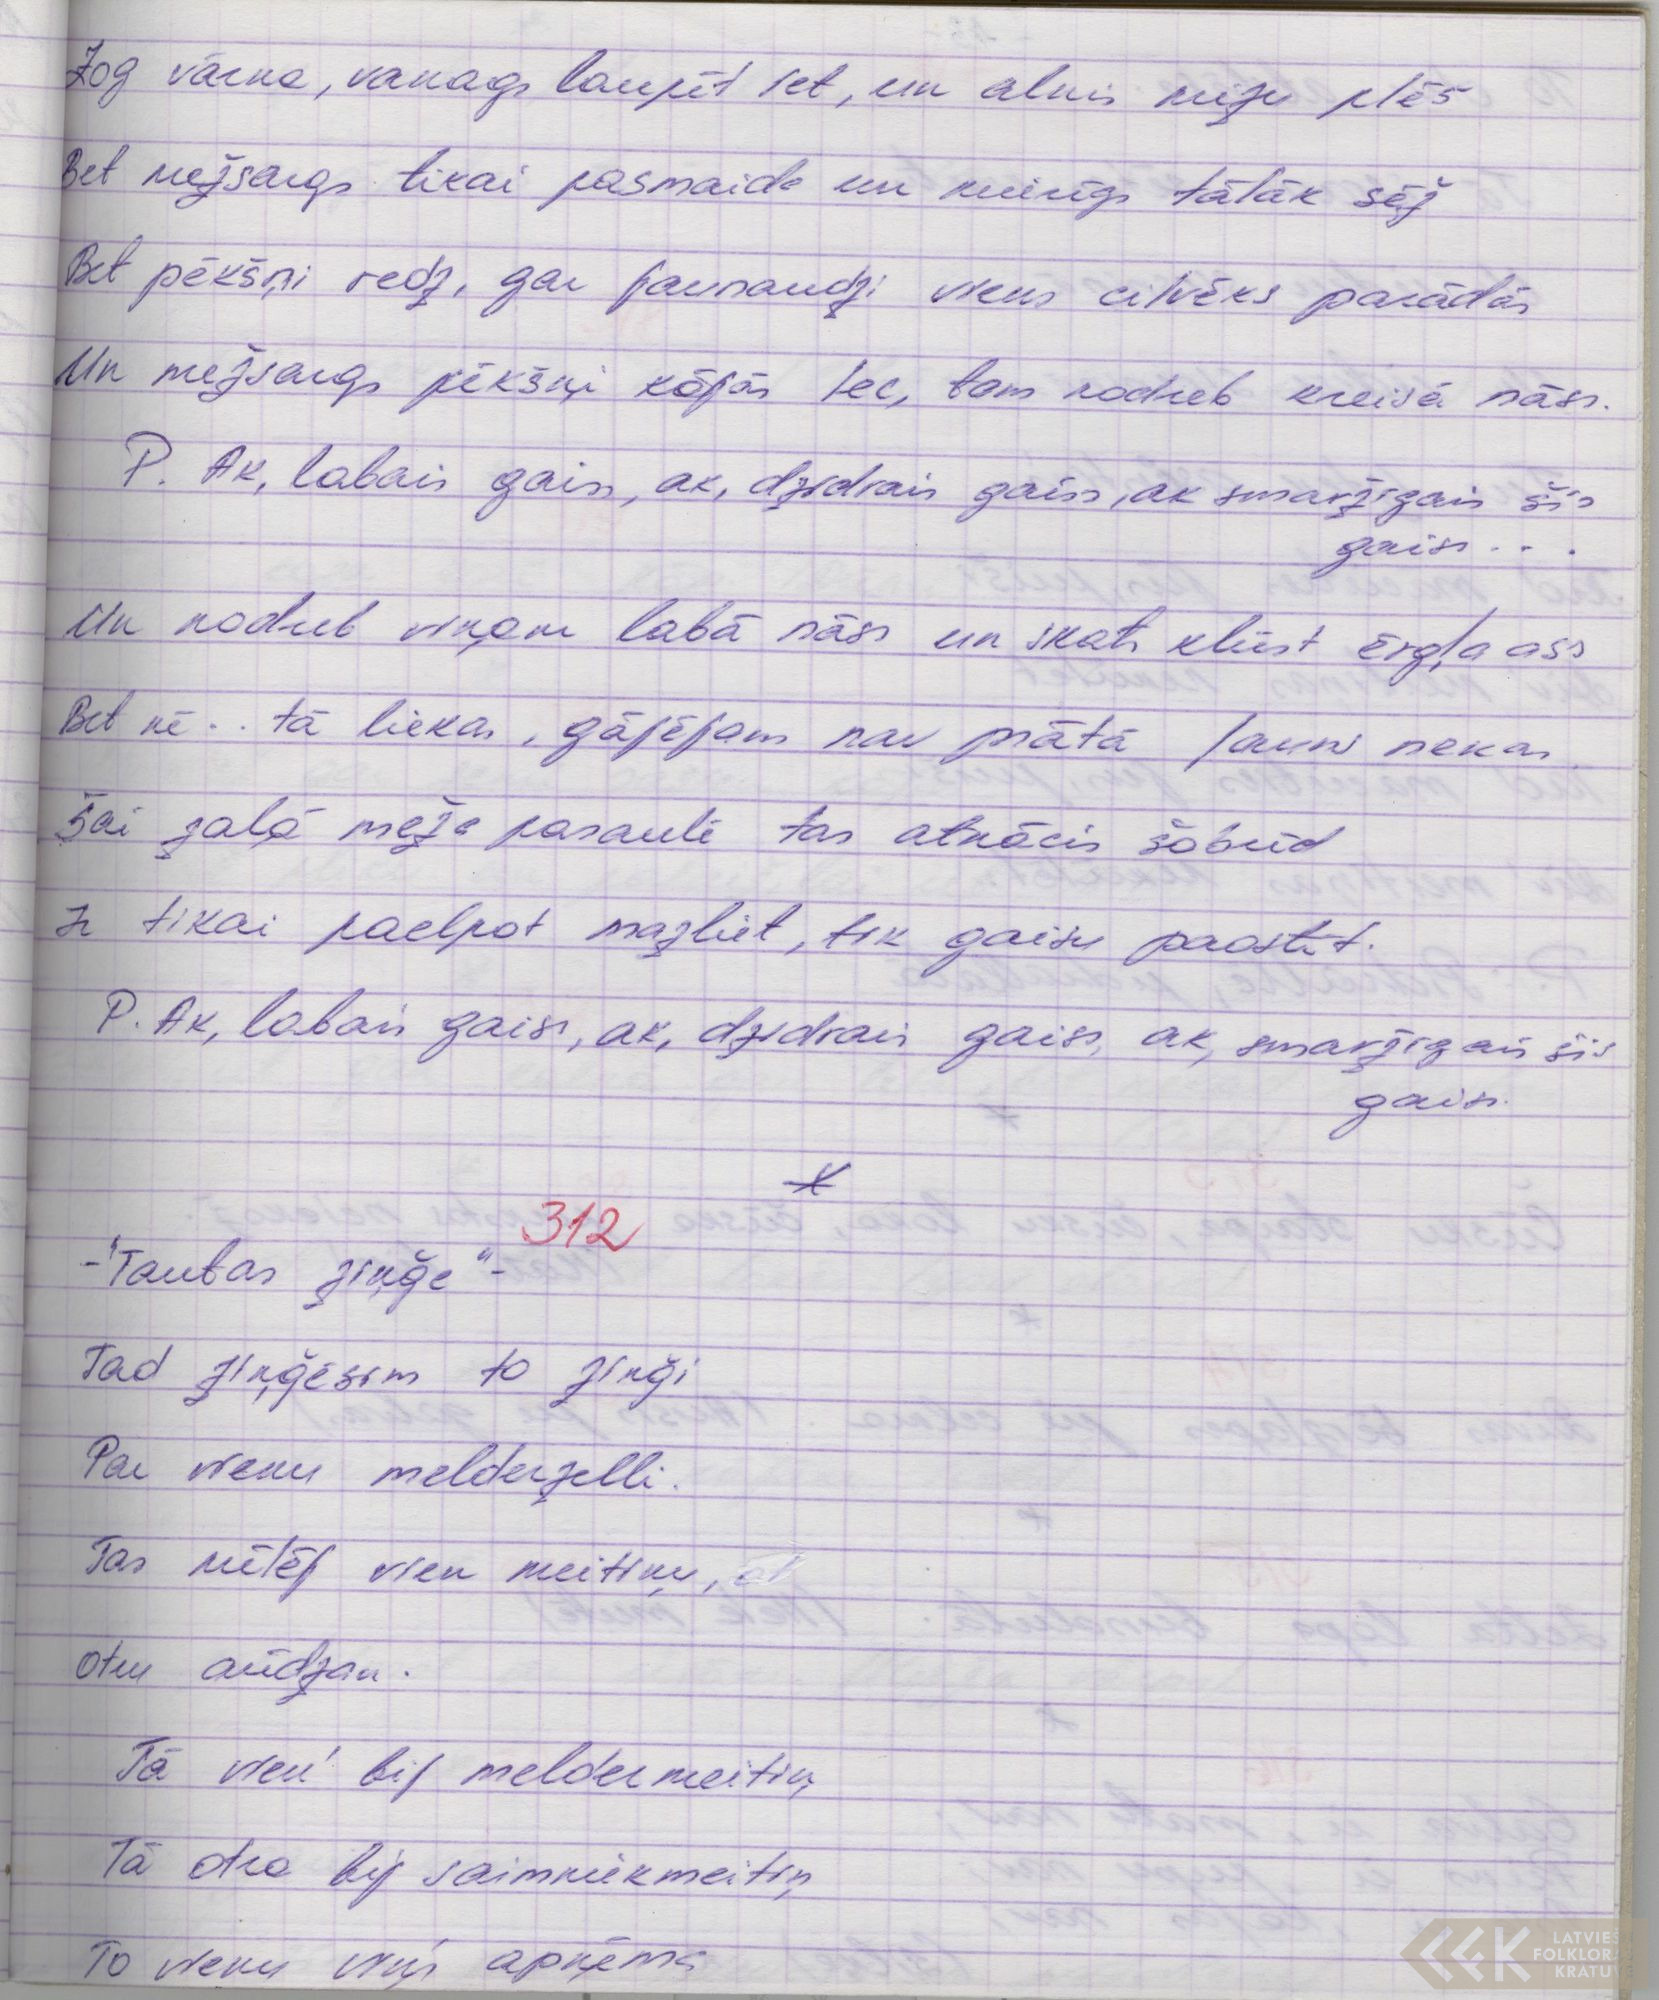 Zog vārna, vanags laupīt iet, un alnis mizu plēš
Bet mežsargs tikai pasmaida un mierīgs tālāk sēž
Bet pēkšņi redz, gar jaunaudzi viens cilvēks parādās
Un mežsargs pēkšņi kājās lec, tam nodreb kreisā nāss.
P. Ak, labais gaiss, ak, dzidrais gaiss, ak smaržīgais šis
gaiss...
Un nodreb viņam labā nāss un skats kļūst ērgļa ass
Bet nē.. tā liekas, gājējam nav prātā ļauns nekas
Šai zaļā meža pasaulē tas atnācis šobrīd
Ir tikai paelpot mazliet, tik gaisu paostīt.
P. Ak, labais gaiss, ak, dzidrais gaiss, ak, smaržīgais šis
gaiss.
*
312
-"Tautas ziņģe"-
Tad ziņģēsim to ziņģi
Par vienu melderzelli.
Tas mīlēj vien meitiņu,
otru arīdzan.
Tā vien' bij meldermeitiņ
Tā otra bij saimniekmeitiņ
To vienu viņš apņēma
LATVIEŠ
FOLKLOR
KRATUV